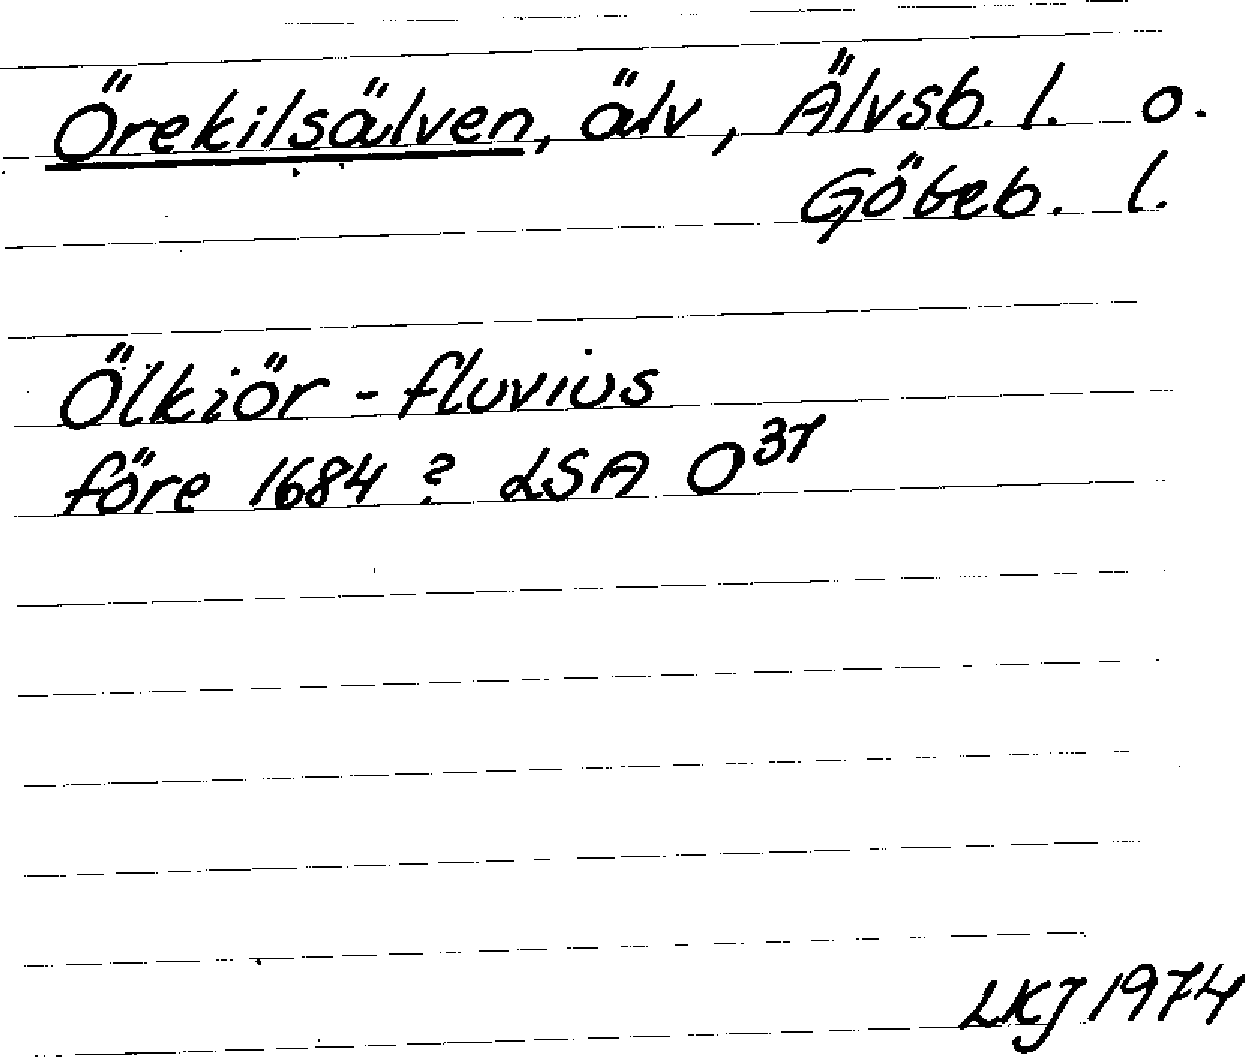 Örekilsälven, älv, Älvsb. l. o.
Göteb. l.
Ölkiör - fluvius
före 1684? LSA O³⁷
LKJ 1974